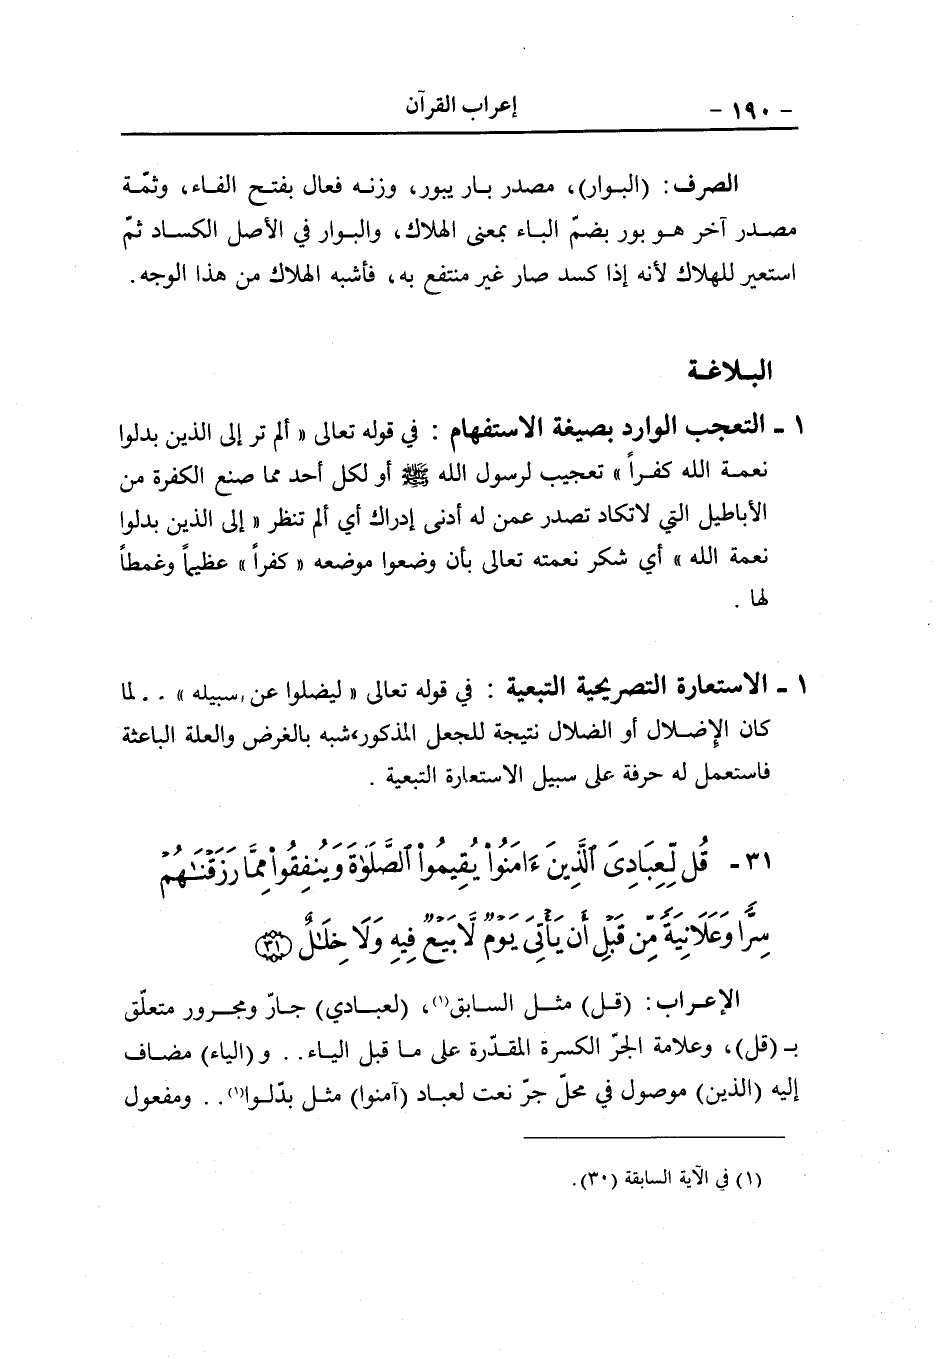 - ١٩٠ -
إعراب القرآن
الصرف: (البـوار)، مصدر بـار يبور، وزنـه فعال بفتـح الفـاء، وثمّـة
مصـدر آخر هـو بور بضمّ البـاء بمعنى الهلاك، والبـوار في الأصل الكسـاد ثمّ
استعير للهلاك لأنه إذا كسد صار غير منتفع به، فأشبه الهلاك من هذا الوجه.
البـلاغـة
١ - التعجب الوارد بصيغة الاستفهام : في قوله تعالى « ألم تر إلى الذين بدلوا
نعمـة الله كفـراً » تعجيب لرسول الله ﷺ أو لكل أحد مما صنع الكفرة من
الأباطيل التي لاتكاد تصدر عمن له أدنى إدراك أي ألم تنظر « إلى الذين بدلوا
نعمة الله » أي شكر نعمته تعالى بأن وضعوا موضعه « كفراً » عظيماً وغمطاً
لها .
١ - الاستعارة التصريحية التبعية : في قوله تعالى « ليضلوا عن سبيله » . . لما
كان الإضـلال أو الضلال نتيجة للجعل المذكور، شبه بالغرض والعلة الباعثة
فاستعمل له حرفة على سبيل الاستعارة التبعية .
٣١ - قُل لِّعِبَادِىَ ٱلَّذِينَ ءَامَنُوا۟ يُقِيمُوا۟ ٱلصَّلَوٰةَ وَيُنفِقُوا۟ مِمَّا رَزَقْنَـٰهُمْ
سِرًّا وَعَلَانِيَةً مِّن قَبْلِ أَن يَأْتِىَ يَوْمٌ لَّا بَيْعٌ فِيهِ وَلَا خِلَـٰلٌ ﴿٣١﴾
الإعـراب: (قـل) مثـل السـابق(١)، (لعبـادي) جـارّ ومجـرور متعلّق
بـ (قل)، وعلامة الجرّ الكسرة المقدّرة على مـا قبل اليـاء. . و (الياء) مضـاف
إليه (الذين) موصول في محلّ جرّ نعت لعباد (آمنوا) مثـل بدّلـوا(١). . ومفعول
(١) في الآية السابقة (٣٠).